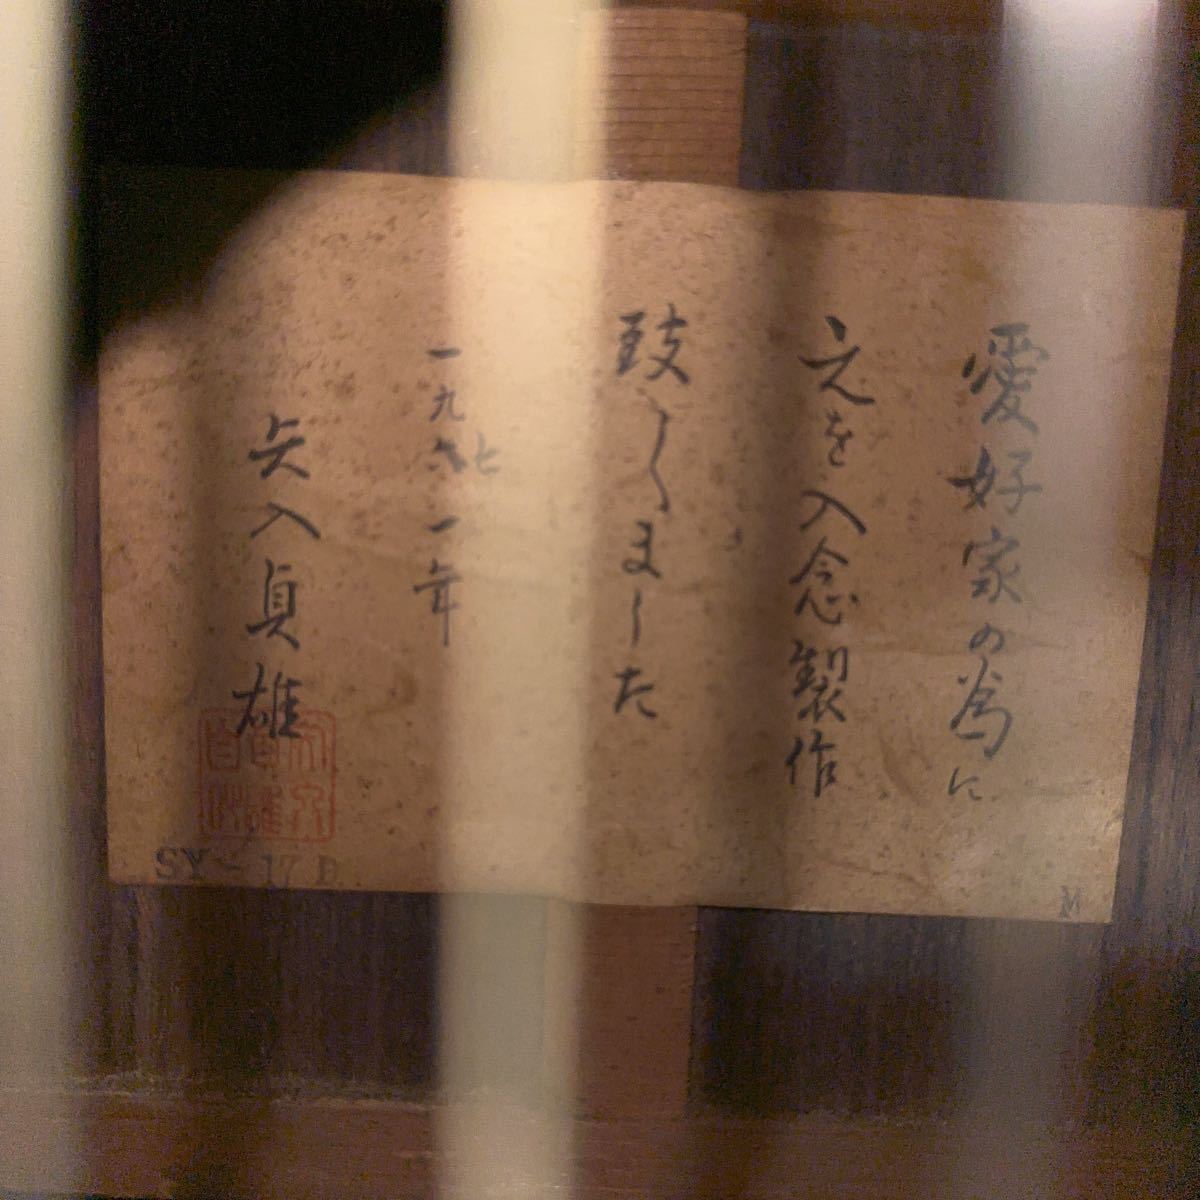 愛好家の為に
之を入念製作
致しました
一九七一年
矢入貞雄
SY-17
M